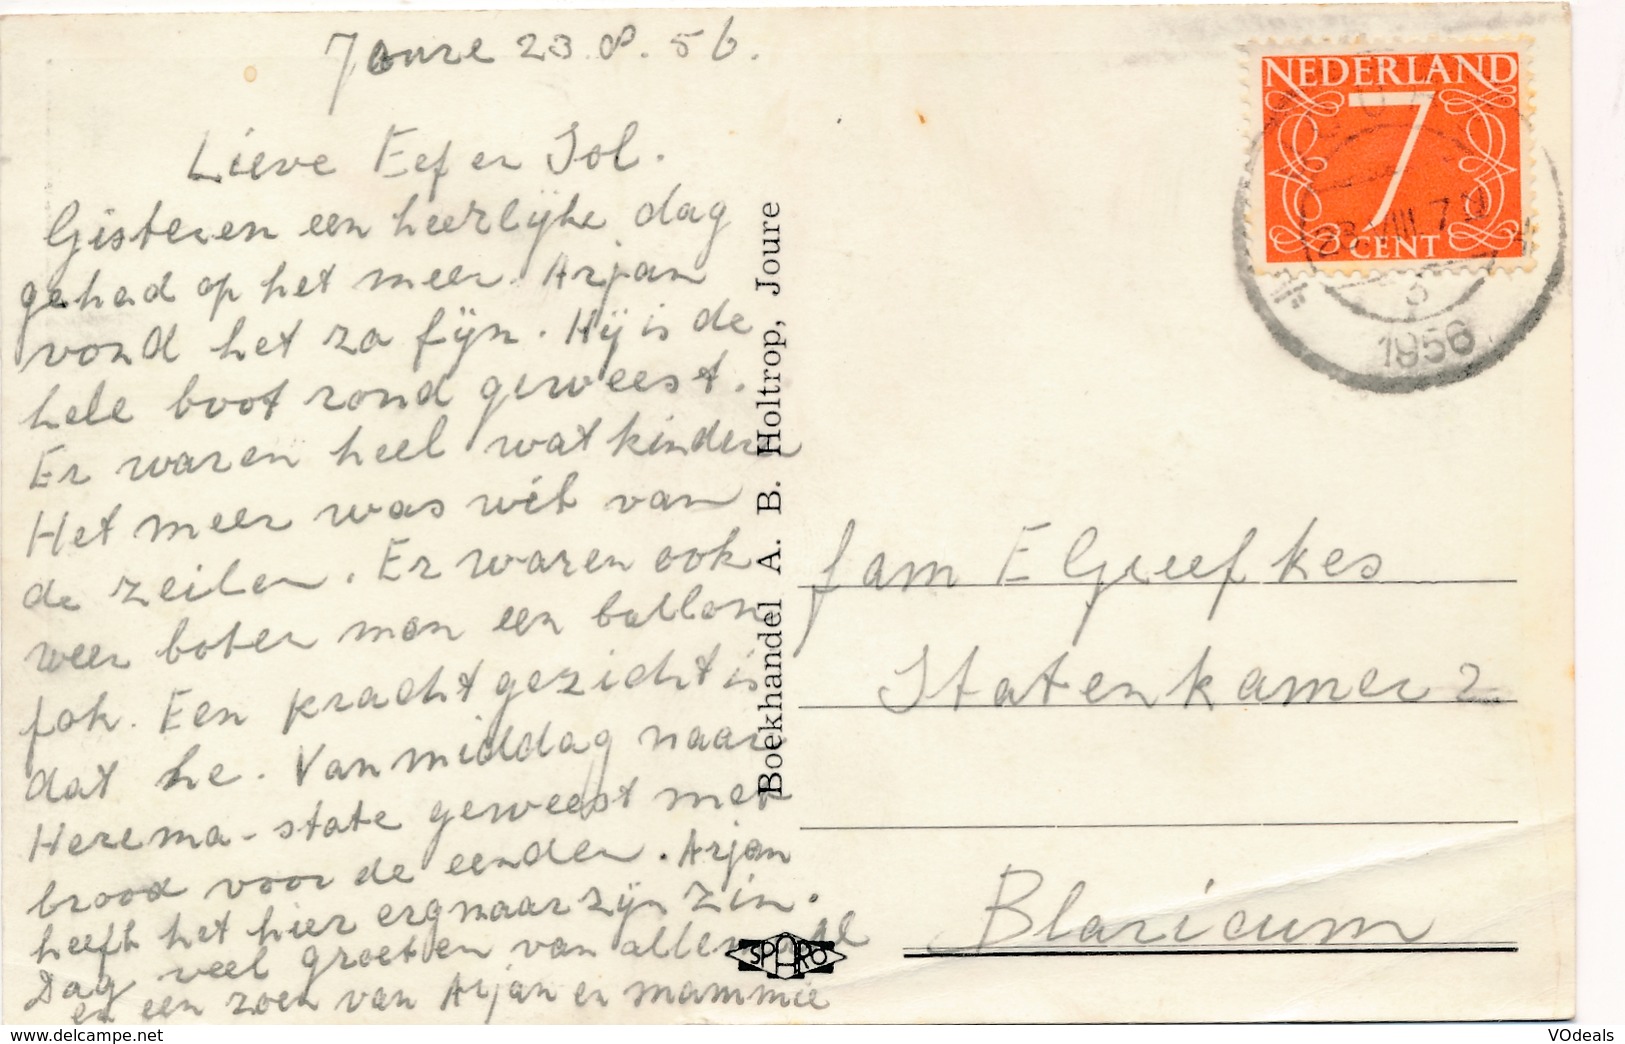 Joure 23.8.56.
Lieve Eef en Jol.
Gisteren een heerlijke dag
gehad op het meer. Arjan
vond het zo fijn. Hij is de
hele boot rond geweest.
Er waren heel wat kinderen
Het meer was wit van
de zeilen. Er waren ook
weer boten man een ballon
fok. Een prachtgezicht is
dat he. Vanmiddag naar
Herema-state geweest met
brood voor de eenden. Arjan
heeft het hier erg naar zijn zin.
Dag veel groeten van allemaal
en een zoen van Arjan en mammie
Boekhandel A. B. Holtrop, Joure
SPARO
NEDERLAND
7
CENT
23 VIII 7
3
1956
fam E Greefkes
Statenkamer 2
Blaricum
VOdeals
www.delcampe.net